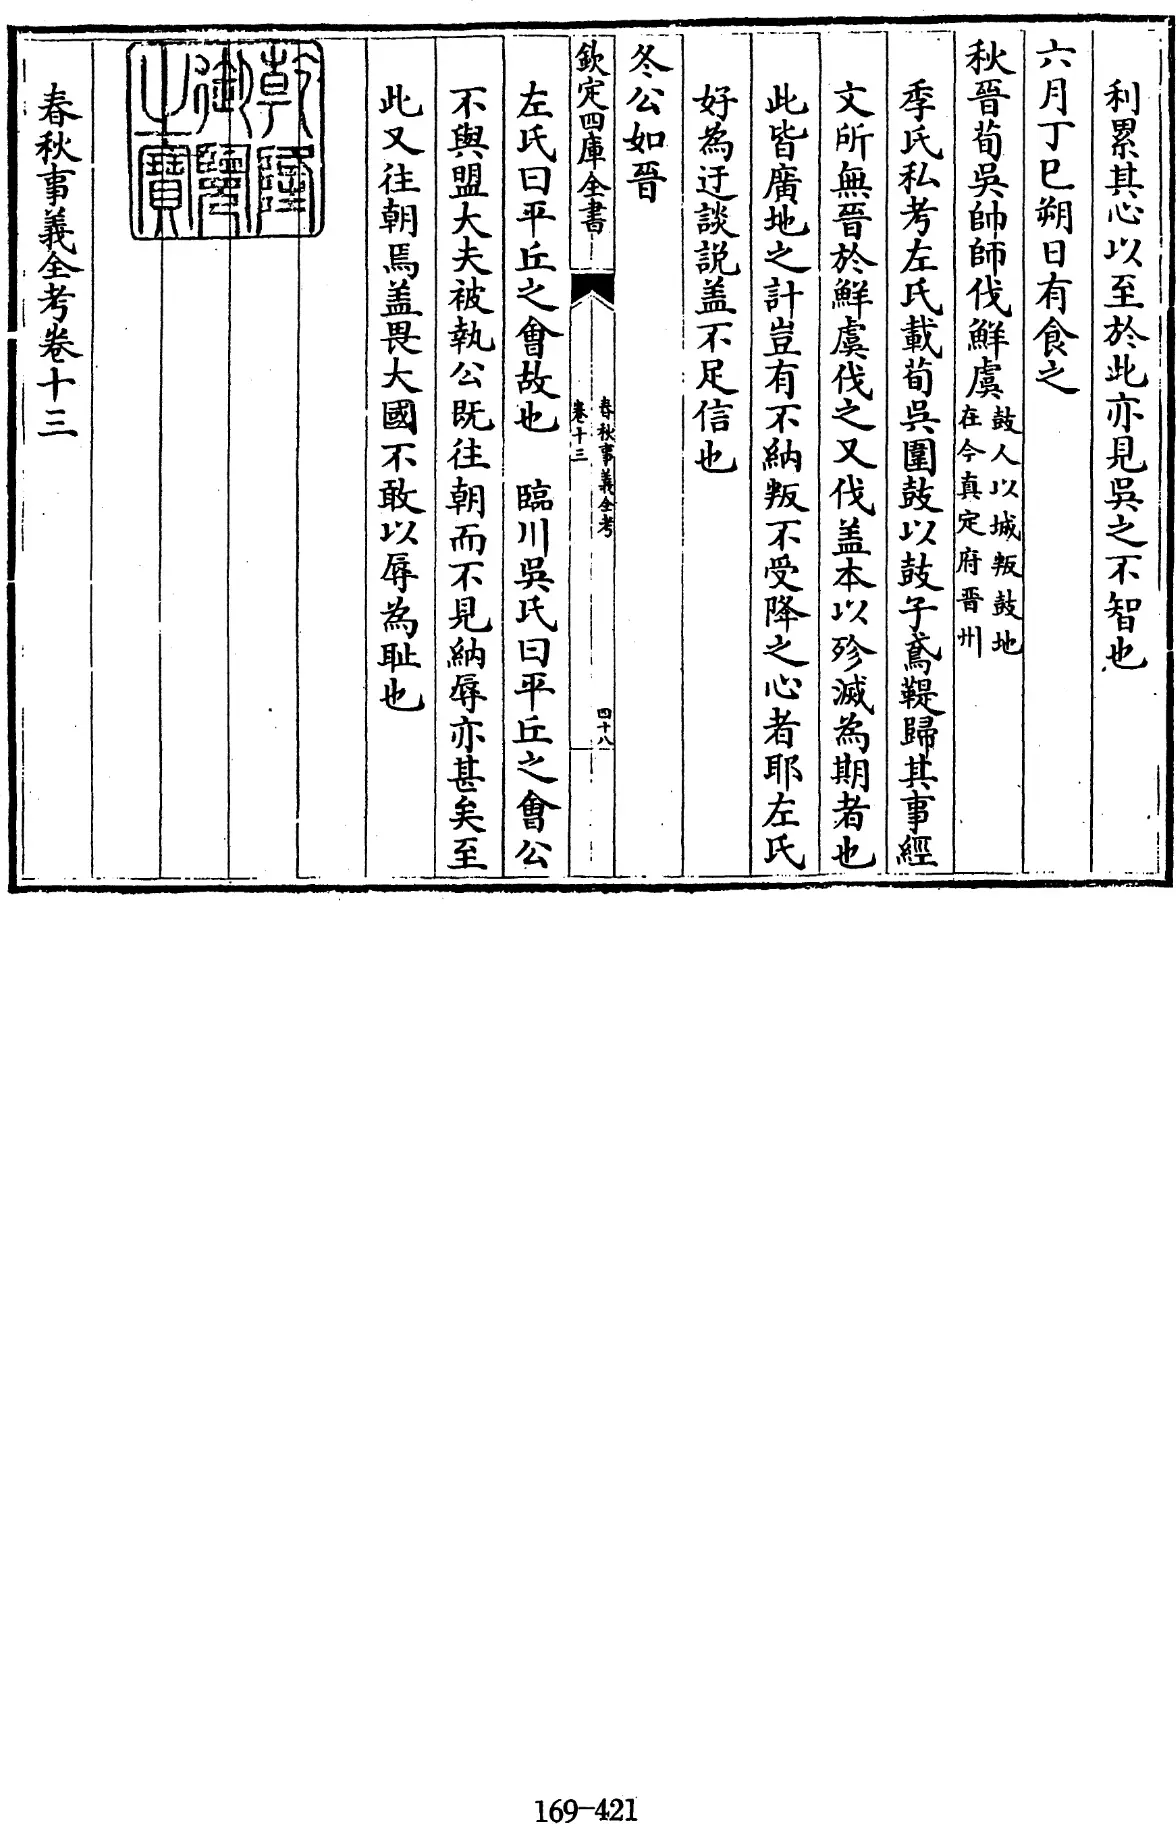 利累其心以至於此亦見吳之不智也
六月丁巳朔日有食之
秋晉荀吳帥師伐鮮虞鼓人以城叛鼓地
在今真定府晉州
季氏私考左氏載荀吳圍鼓以鼓子鳶鞮歸其事經
文所無晉於鮮虞伐之又伐盖本以殄滅為期者也
此皆廣地之計豈有不納叛不受降之心者耶左氏
好為迂談説盖不足信也
冬公如晉
欽定四庫全書
春秋事義全考
卷十三
四十八
左氏曰平丘之會故也 臨川吳氏曰平丘之會公
不與盟大夫被執公既往朝而不見納辱亦甚矣至
此又往朝焉盖畏大國不敢以辱為恥也
乾隆
御覽
之寶
春秋事義全考卷十三
169-421